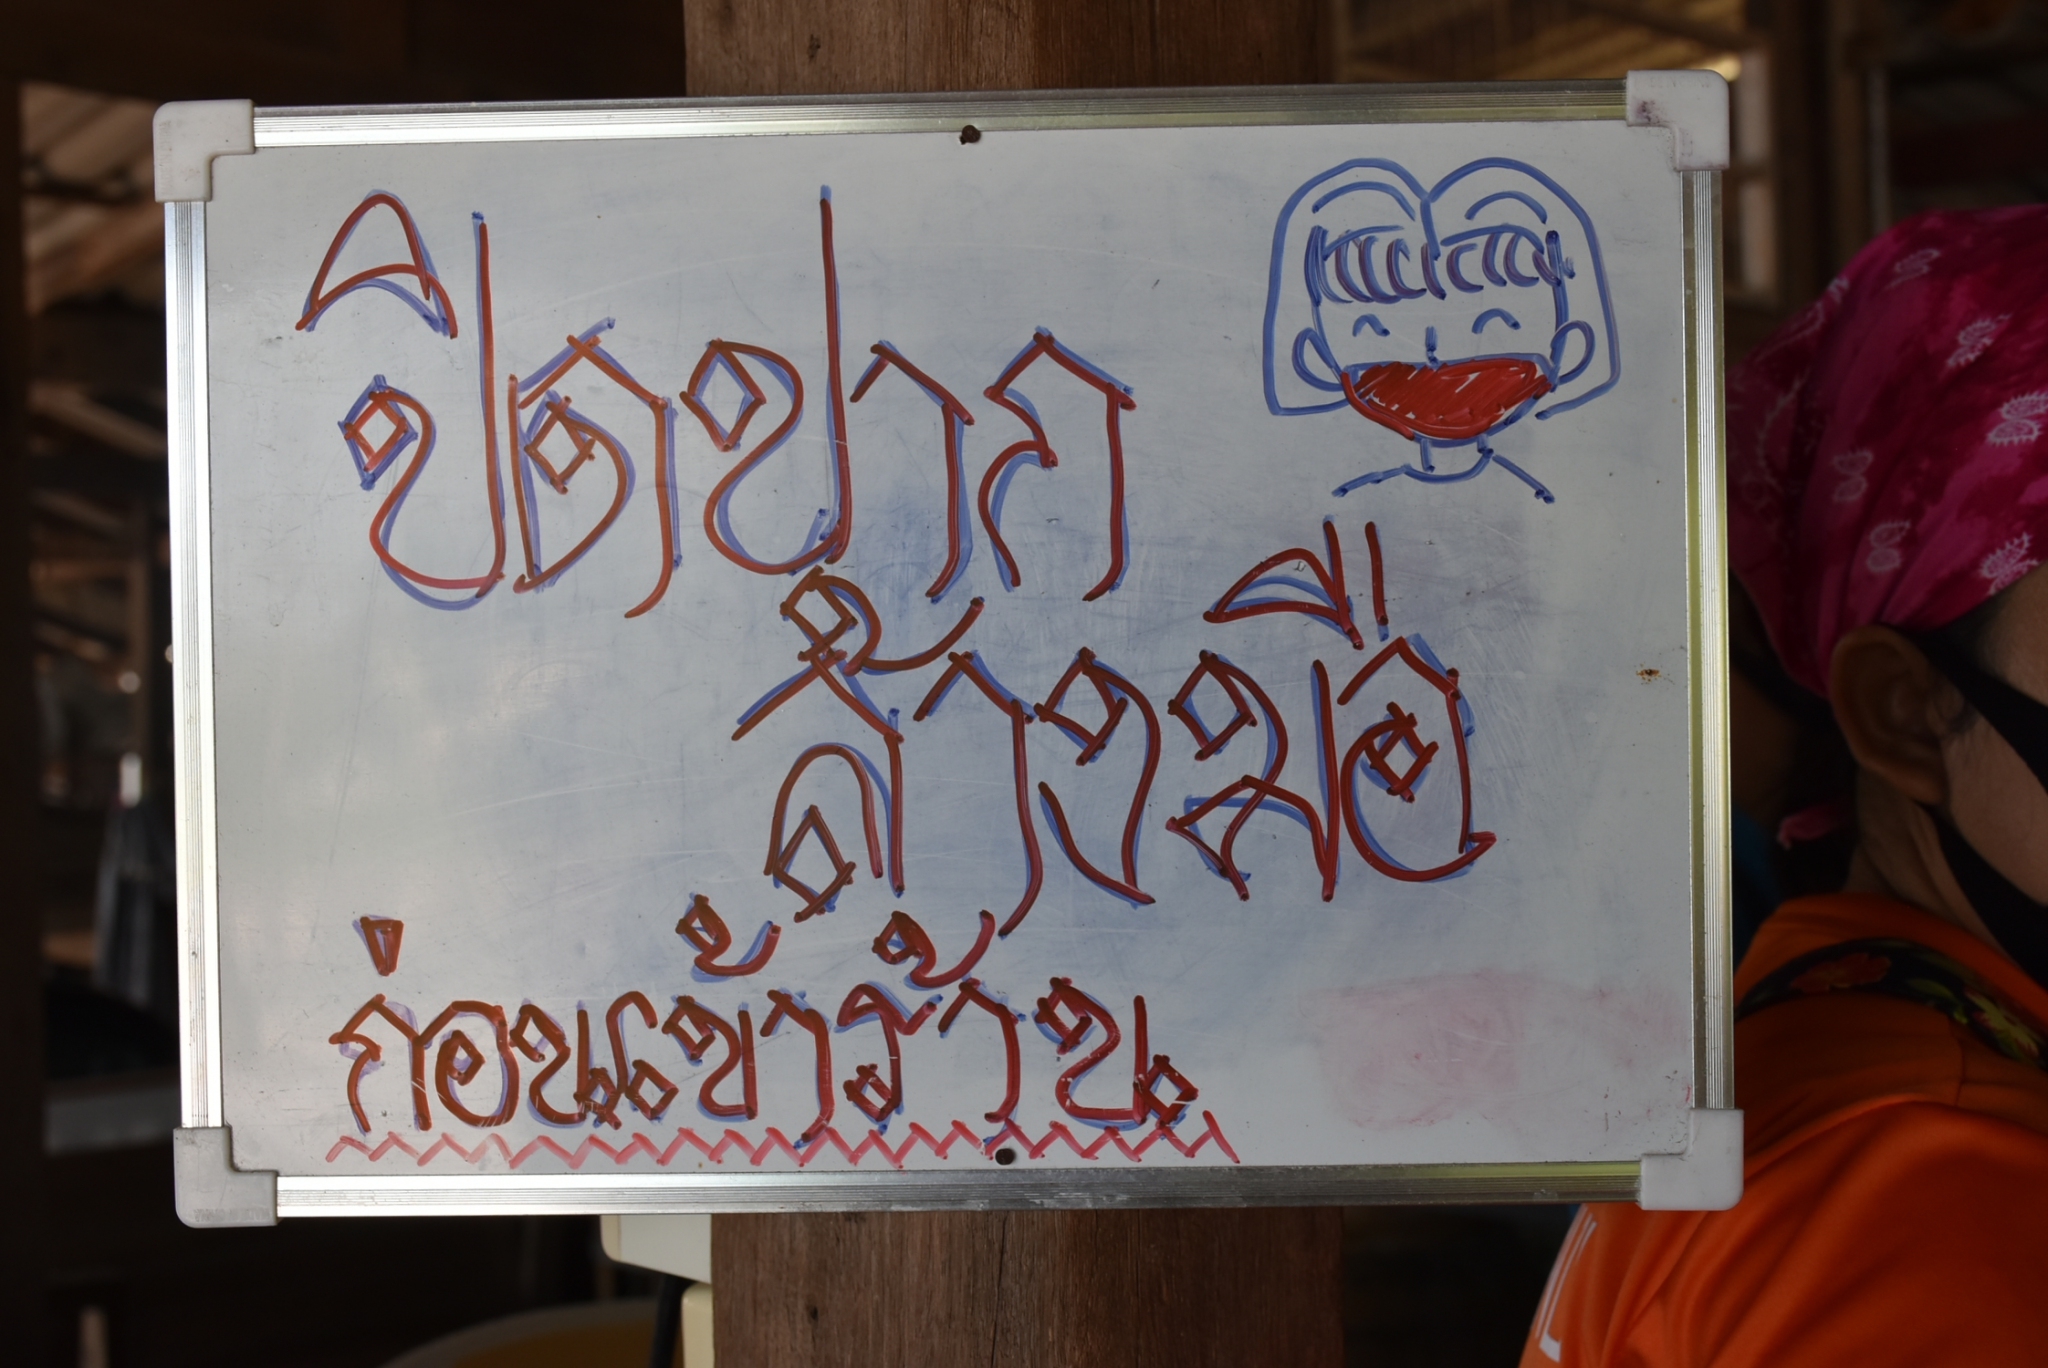 ปิดปาก
ล้างมือ
ก่อนเข้าร้าน